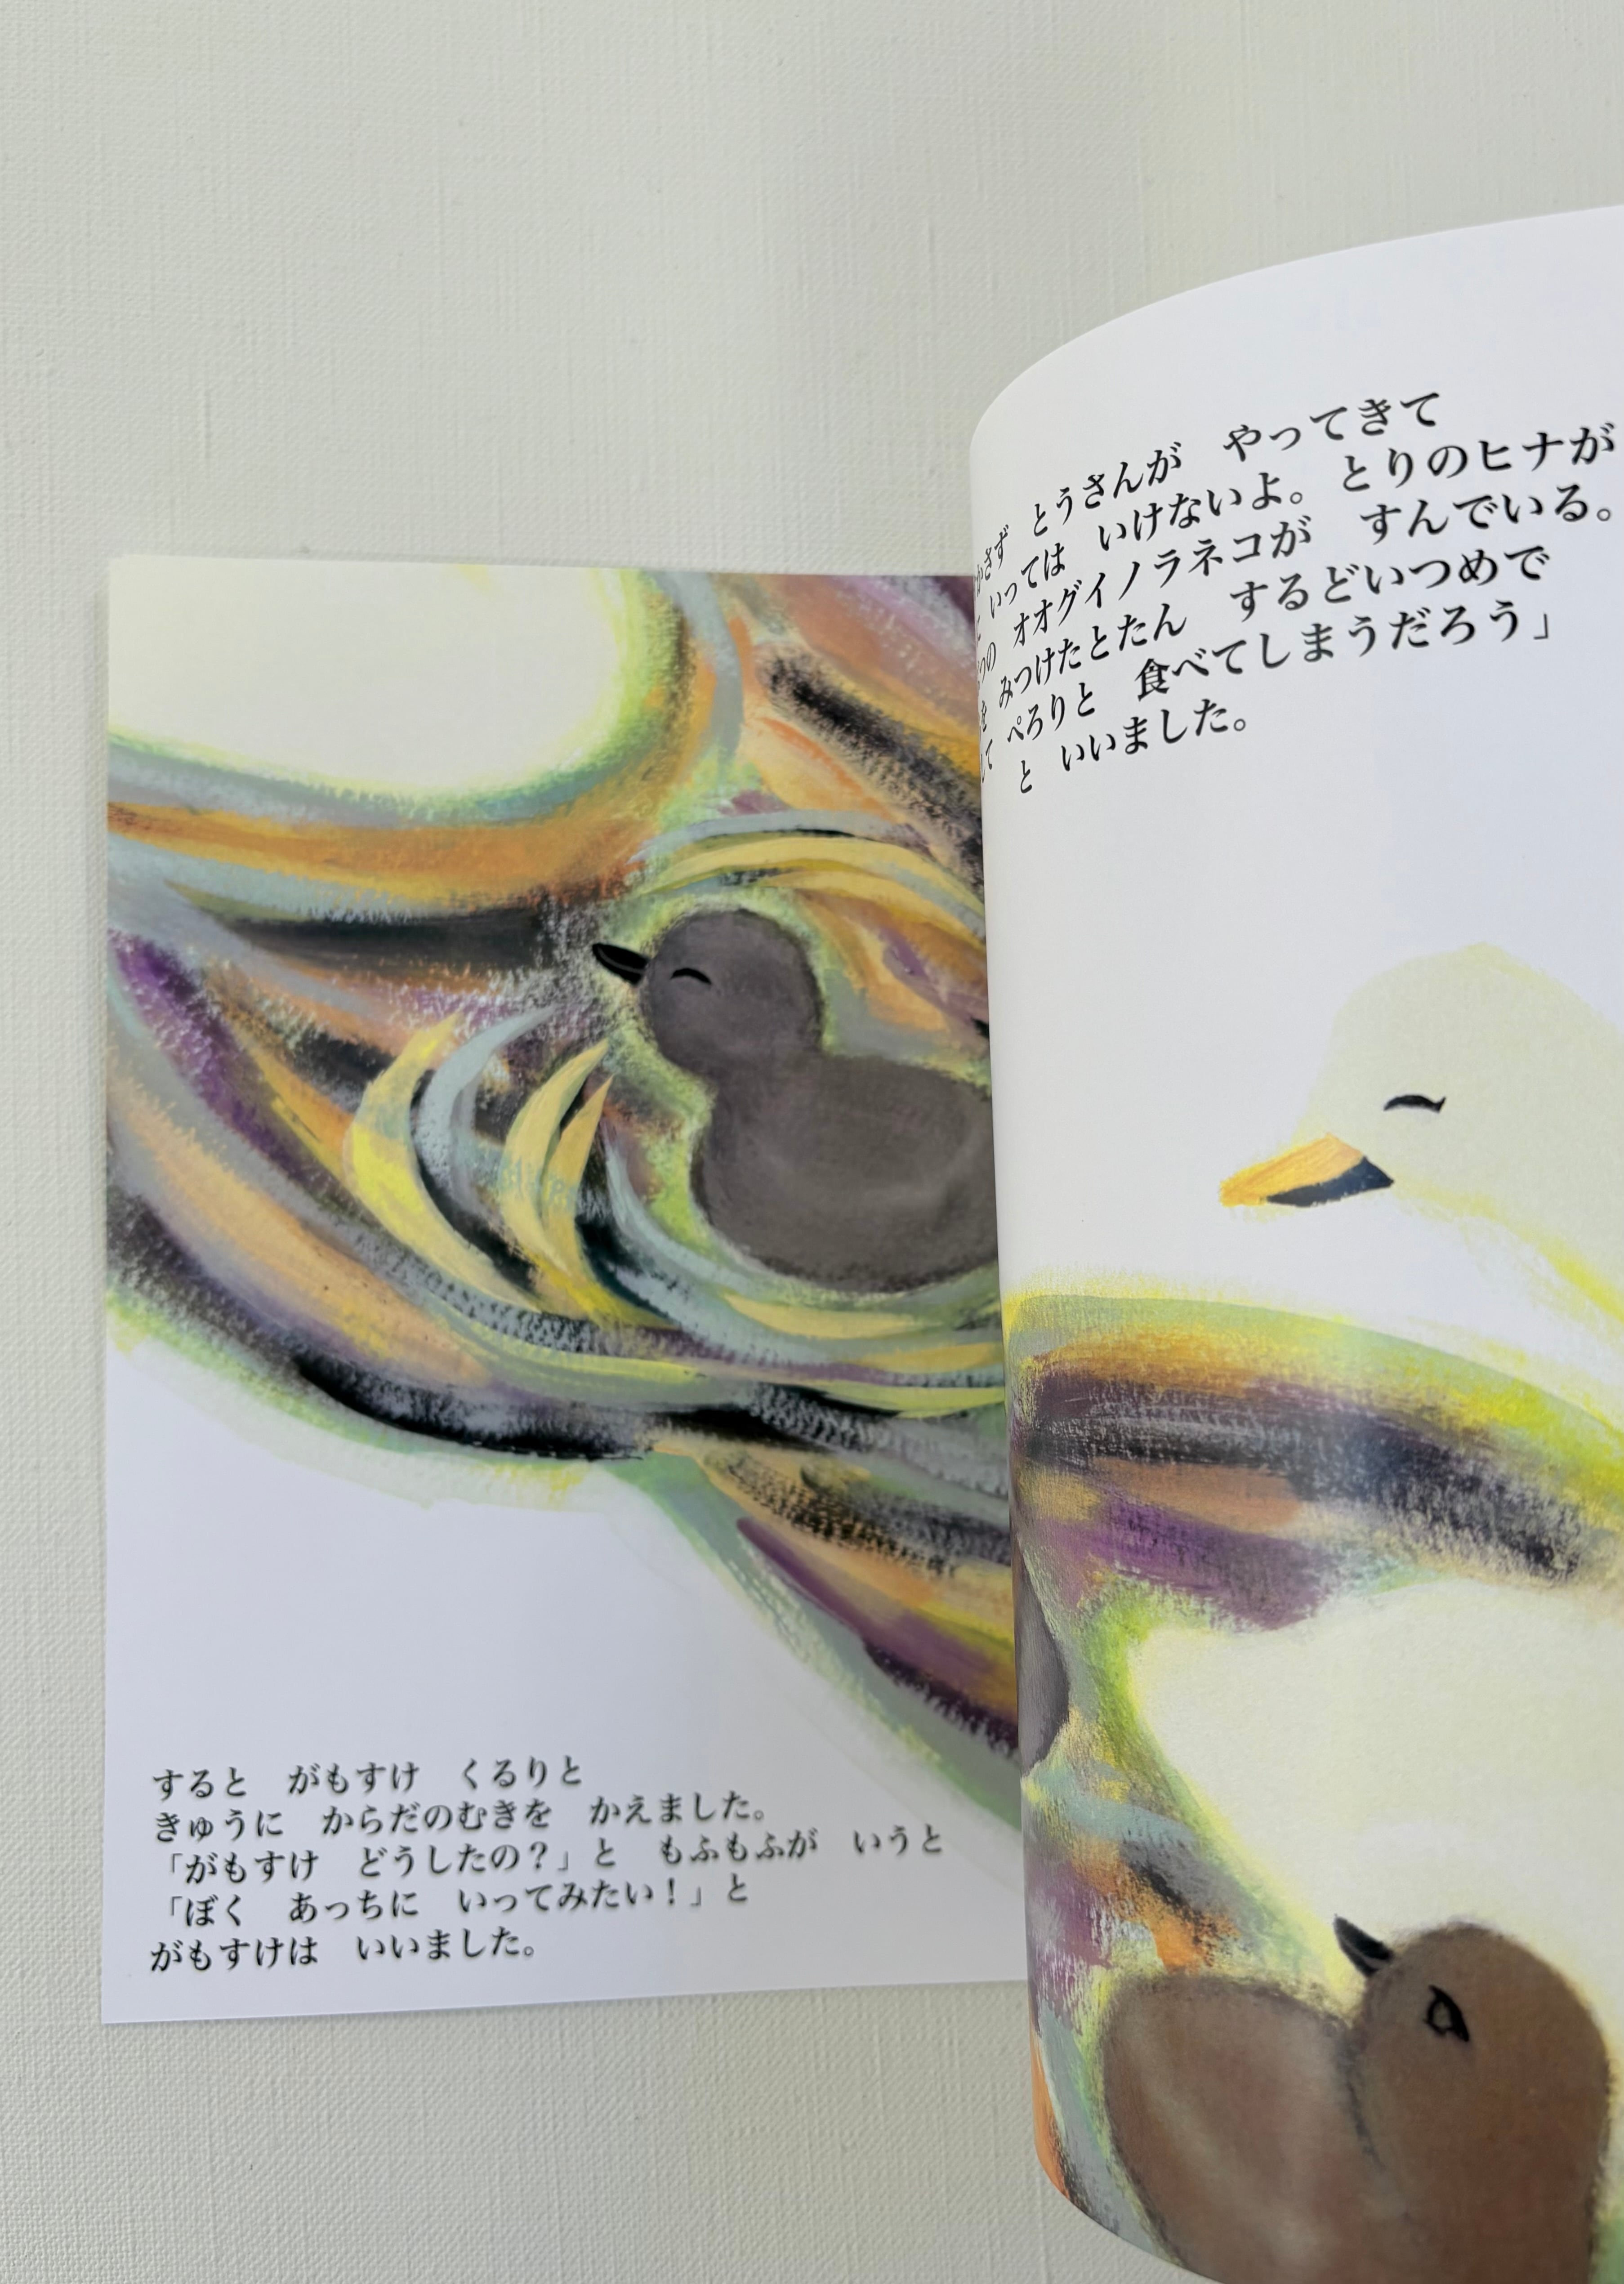 すると　がもすけ　くるりと
きゅうに　からだのむきを　かえました。
「がもすけ　どうしたの？」と　もふもふが　いうと
「ぼく　あっちに　いってみたい！」と
がもすけは　いいました。
とうさんが　やってきて
いっては　いけないよ。とりのヒナが
オオグイノラネコが　すんでいる。
みつけたとたん　するどいつめで
ぺろりと　食べてしまうだろう」
と　いいました。